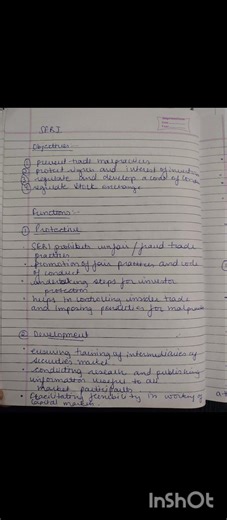 SEBI
Objectives :-
① prevent trade malpractices
② protect rights and interest of investors
③ regulate and develop a code of conduct
④ regulate stock exchange
Functions :-
① Protective
• SEBI prohibits unfair / fraud trade
practices
• promotion of fair practices and code
of conduct
• undertaking steps for investor
protection
• helps in controlling inside trade
and imposing penalties for malpractices
② Development
• ensuring training of intermediaries of
securities market
• conducting research and publishing
information useful to all
market participants
• facilitating flexibility in working of
capital market.
InShOt